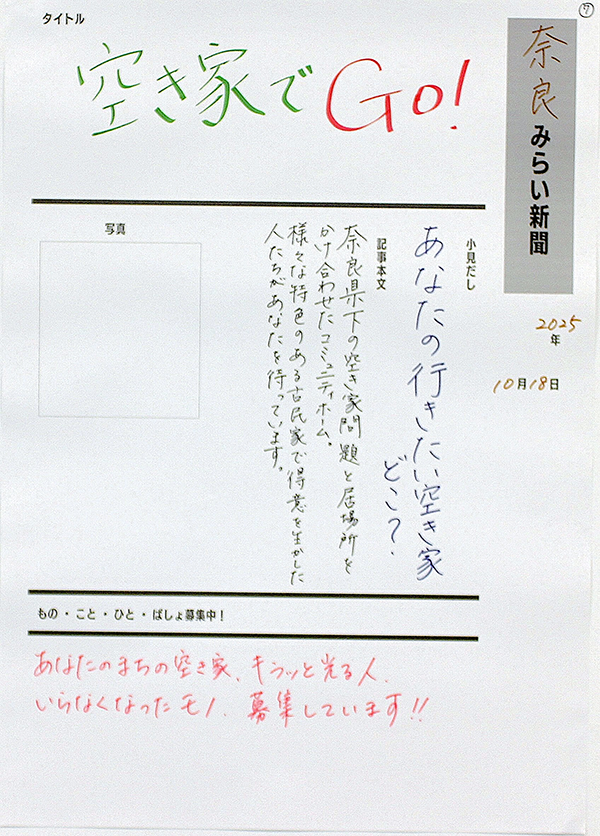 ⑦
タイトル
空き家でGo!
奈良みらい新聞
2025
年
10月18日
小見だし
あなたの行きたい空き家
どこ?
記事本文
奈良県下の空き家問題と居場所を
かけ合わせたコミュニティホーム。
様々な特色のある古民家で得意を生かした
人たちがあなたを待っています。
写真
もの・こと・ひと・ばしょ募集中!
あなたのまちの空き家、キラッと光る人、
いらなくなったモノ、募集しています!!